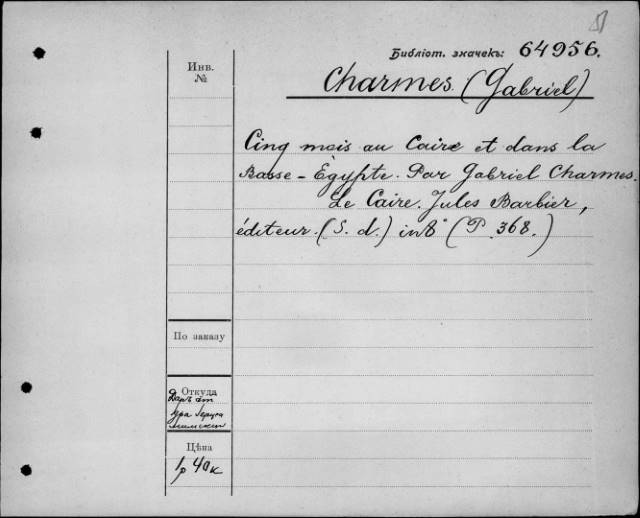 Библіот. значекъ: 64956.
Charmes. (Gabriel)
Инв.
№
Cinq mois au Caire et dans la
Basse-Égypte. Par Gabriel Charmes.
Le Caire. Jules Barbier,
éditeur. (S. d.) in 8° (P. 368.)
По заказу
Откуда
Даръ
Цѣна
1р 40к